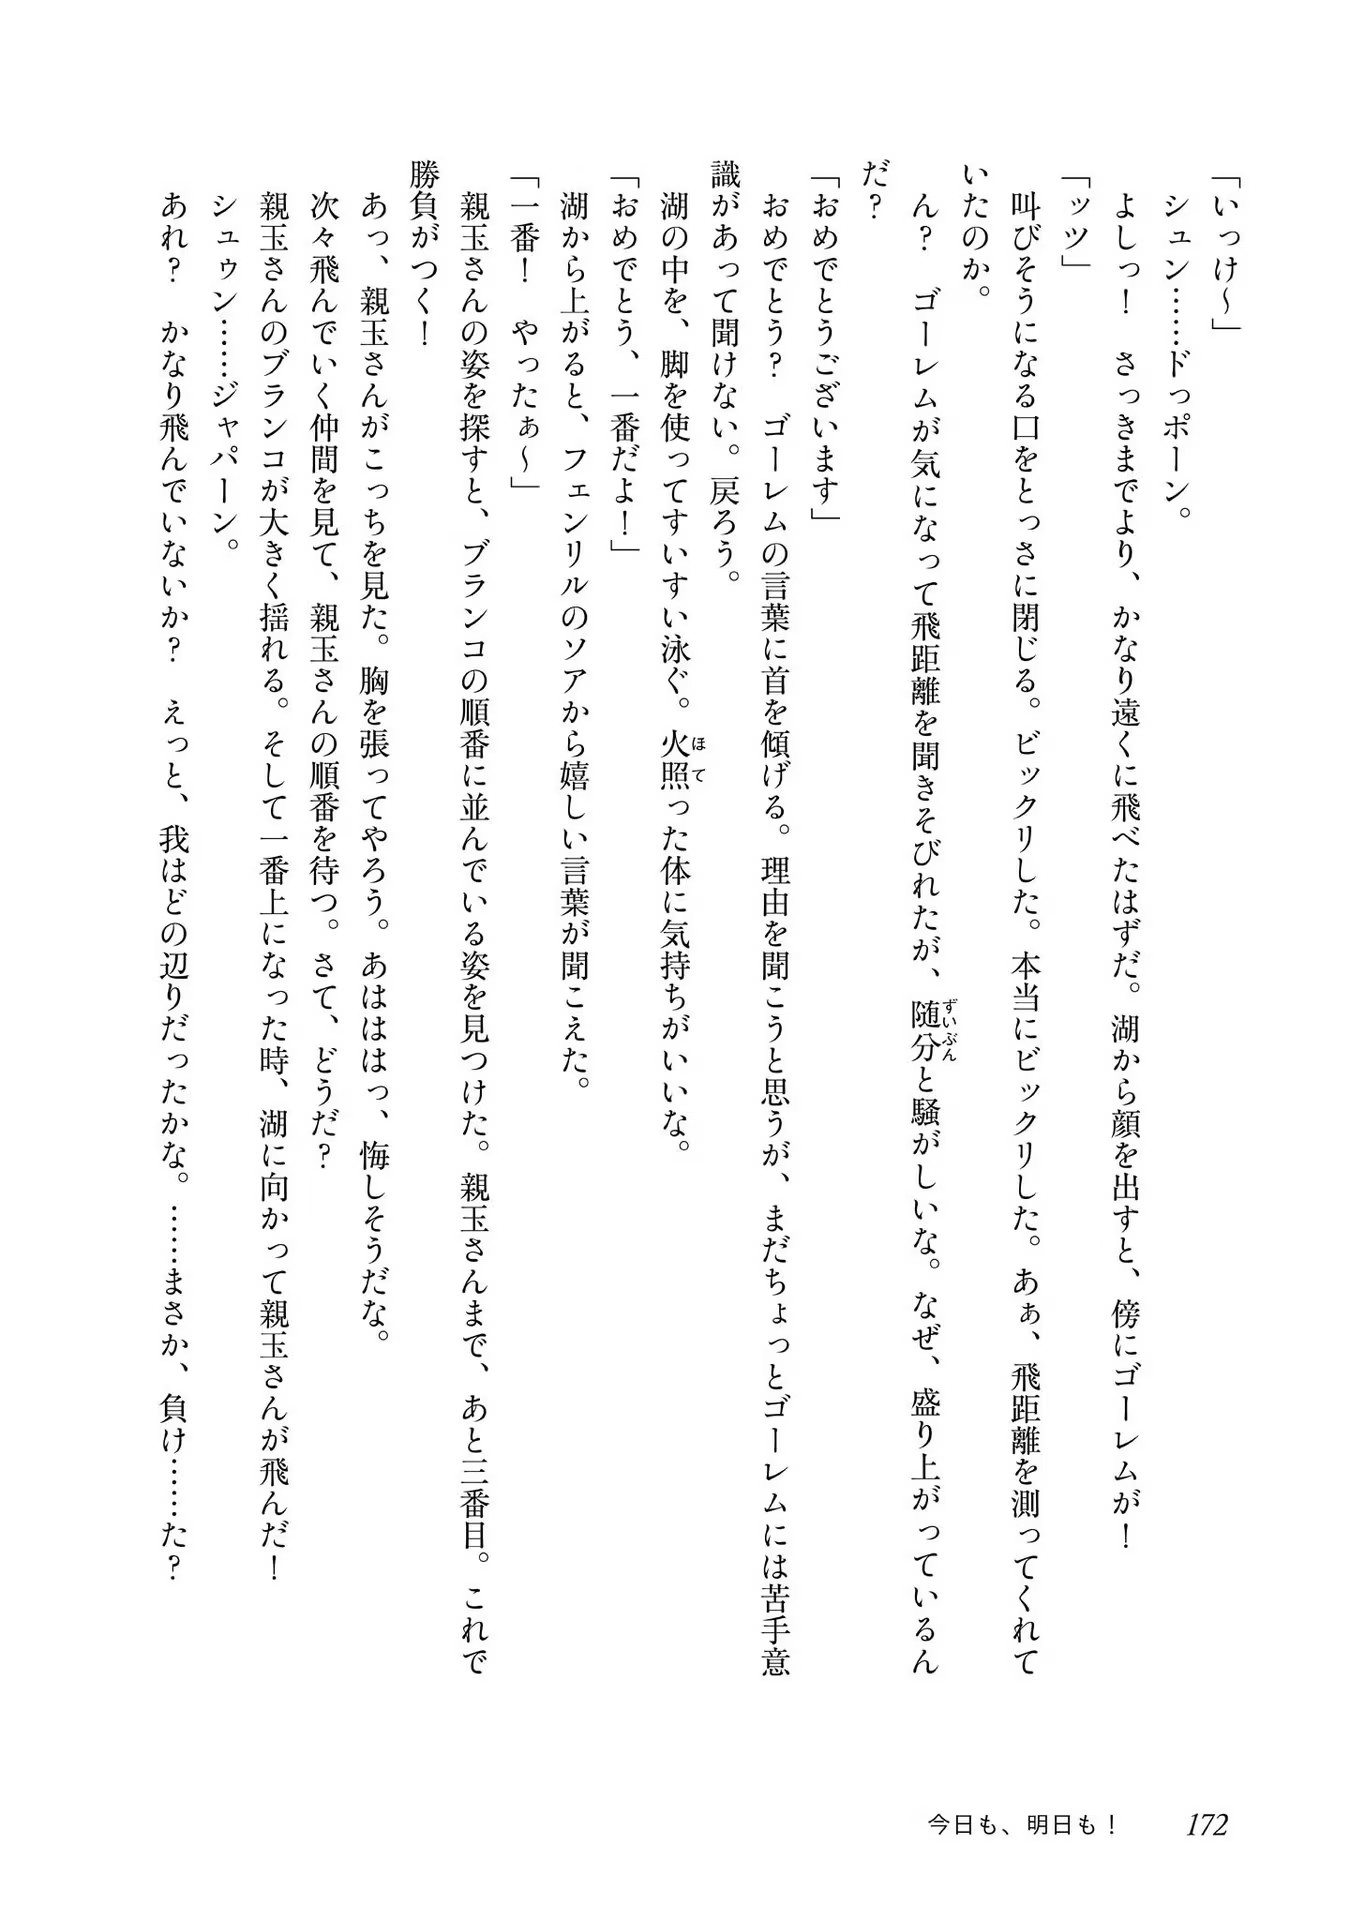 「いっけ～」
シュン……ドっポーン。
よしっ！　さっきまでより、かなり遠くに飛べたはずだ。湖から顔を出すと、傍にゴーレムが！
「ッツ」
叫びそうになる口をとっさに閉じる。ビックリした。本当にビックリした。あぁ、飛距離を測ってくれて
いたのか。
ん？　ゴーレムが気になって飛距離を聞きそびれたが、随分と騒がしいな。なぜ、盛り上がっているん
ずいぶん
だ？
「おめでとうございます」
おめでとう？　ゴーレムの言葉に首を傾げる。理由を聞こうと思うが、まだちょっとゴーレムには苦手意
識があって聞けない。戻ろう。
湖の中を、脚を使ってすいすい泳ぐ。火照った体に気持ちがいいな。
ほて
「おめでとう、一番だよ！」
湖から上がると、フェンリルのソアから嬉しい言葉が聞こえた。
「一番！　やったぁ～」
親玉さんの姿を探すと、ブランコの順番に並んでいる姿を見つけた。親玉さんまで、あと三番目。これで
勝負がつく！
あっ、親玉さんがこっちを見た。胸を張ってやろう。あはははっ、悔しそうだな。
次々飛んでいく仲間を見て、親玉さんの順番を待つ。さて、どうだ？
親玉さんのブランコが大きく揺れる。そして一番上になった時、湖に向かって親玉さんが飛んだ！
シュゥン……ジャパーン。
あれ？　かなり飛んでいないか？　えっと、我はどの辺りだったかな。……まさか、負け……た？
今日も、明日も！　172